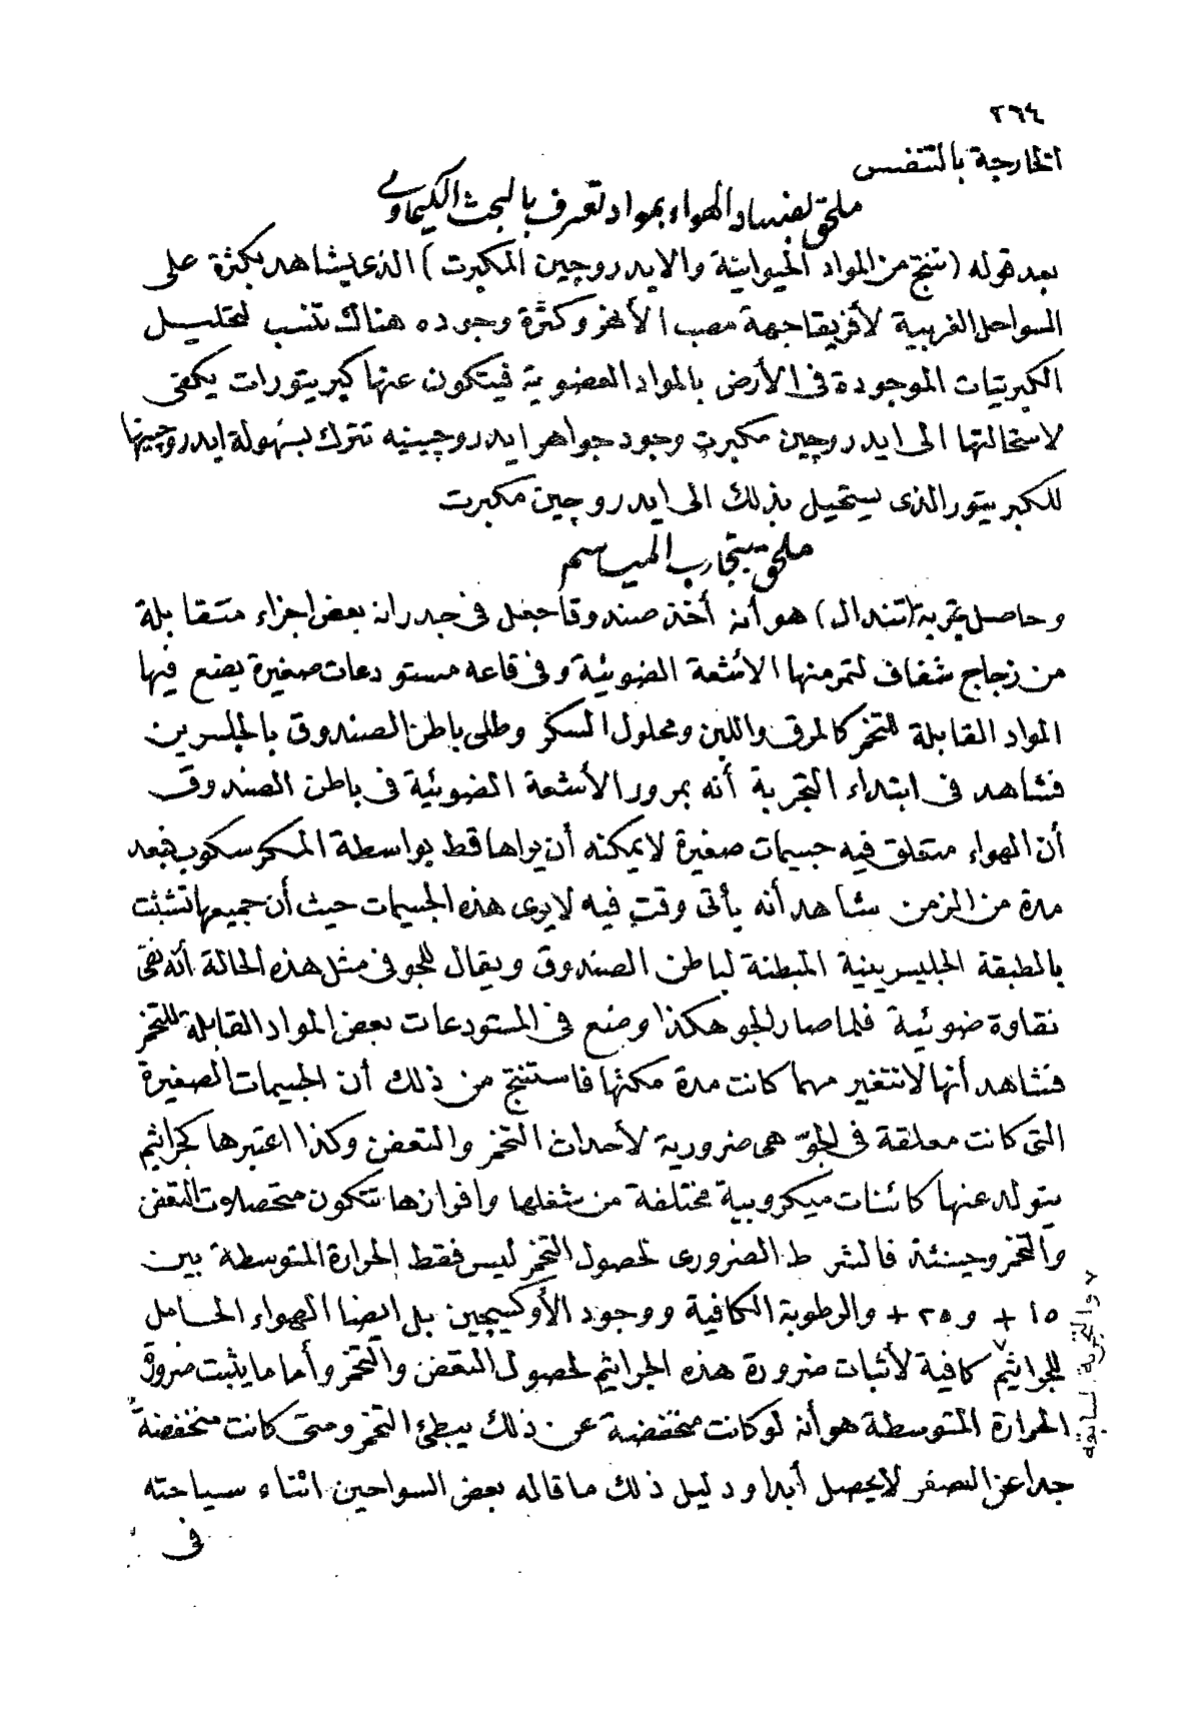 ٢٦٤
الخارجة بالتنفس
ملحق لفساد الهواء بمواد تعرف بالبحث الكيماوى
بعد قوله (تنتج من المواد الحيوانية والايدروچين المكبرت) الذى يشاهد بكثرة على
السواحل الغربية لأفريقا جهة مصب الأنهر وكثرة وجوده هناك تنسب لتحليل
الكبريتات الموجودة فى الأرض بالمواد العضوية فيتكون عنها كبريتورات يكفى
لاستحالتها الى ايدروچين مكبرت وجود جواهر ايدروچينيه تترك بسهولة ايدروچينها
للكبريتور الذى يستحيل بذلك الى ايدروچين مكبرت
ملحق بتجارب المياسم
وحاصل تجربة (تندال) هو أنه أخذ صندوقا جعل فى جدرانه بعض اجزاء متقابلة
من زجاج شفاف لتمر منها الأشعة الضوئية وفى قاعه مستودعات صغيرة يضع فيها
المواد القابلة للتخمر كالمرق واللبن ومحلول السكر وطلى باطن الصندوق بالجلسرين
فشاهد فى ابتداء التجربة أنه بمرور الأشعة الضوئية فى باطن الصندوق
أن الهواء متعلق فيه جسيمات صغيرة لا يمكنه أن يراها قط بواسطة المكرسكوب فبعد
مدة من الزمن شاهد أنه يأتى وقت فيه لا يرى هذه الجسيمات حيث أن جميعها تشبثت
بالطبقة الجليسرينية المبطنة لباطن الصندوق ويقال للجو فى مثل هذه الحالة أنه نقى
نقاوة ضوئية فلما صار الجو هكذا وضع فى المستودعات بعض المواد القابلة للتخمر
فشاهد أنها لا تتغير مهما كانت مدة مكثها فاستنتج من ذلك أن الجسيمات الصغيرة
التى كانت معلقة فى الجوّ هى ضرورية لأحداث التخمر والتعفن وكذا اعتبرها كجراثيم
يتولد عنها كائنات ميكروبية مختلفة من شغلها وافرازها تتكون متحصلات التعفن
والتخمر وحينئذ فالشرط الضرورى لحصول التخمر ليس فقط الحرارة المتوسطة بين
١٥ + و ٢٥ + والرطوبة الكافية ووجود الأوكسيجين بل ايضا الهواء الحامل
للجراثيم ٧ كافية لأثبات ضرورة هذه الجراثيم لحصول التعفن والتخمر وأما ما يثبت ضرورة
٧ والتجربة السابقة
الحرارة المتوسطة هو أنه لو كانت منخفضة عن ذلك يبطئ التخمر ومتى كانت منخفضة
جدا عن الصفر لا يحصل أبدا ودليل ذلك ما قاله بعض السواحين اثناء سياحته
فى